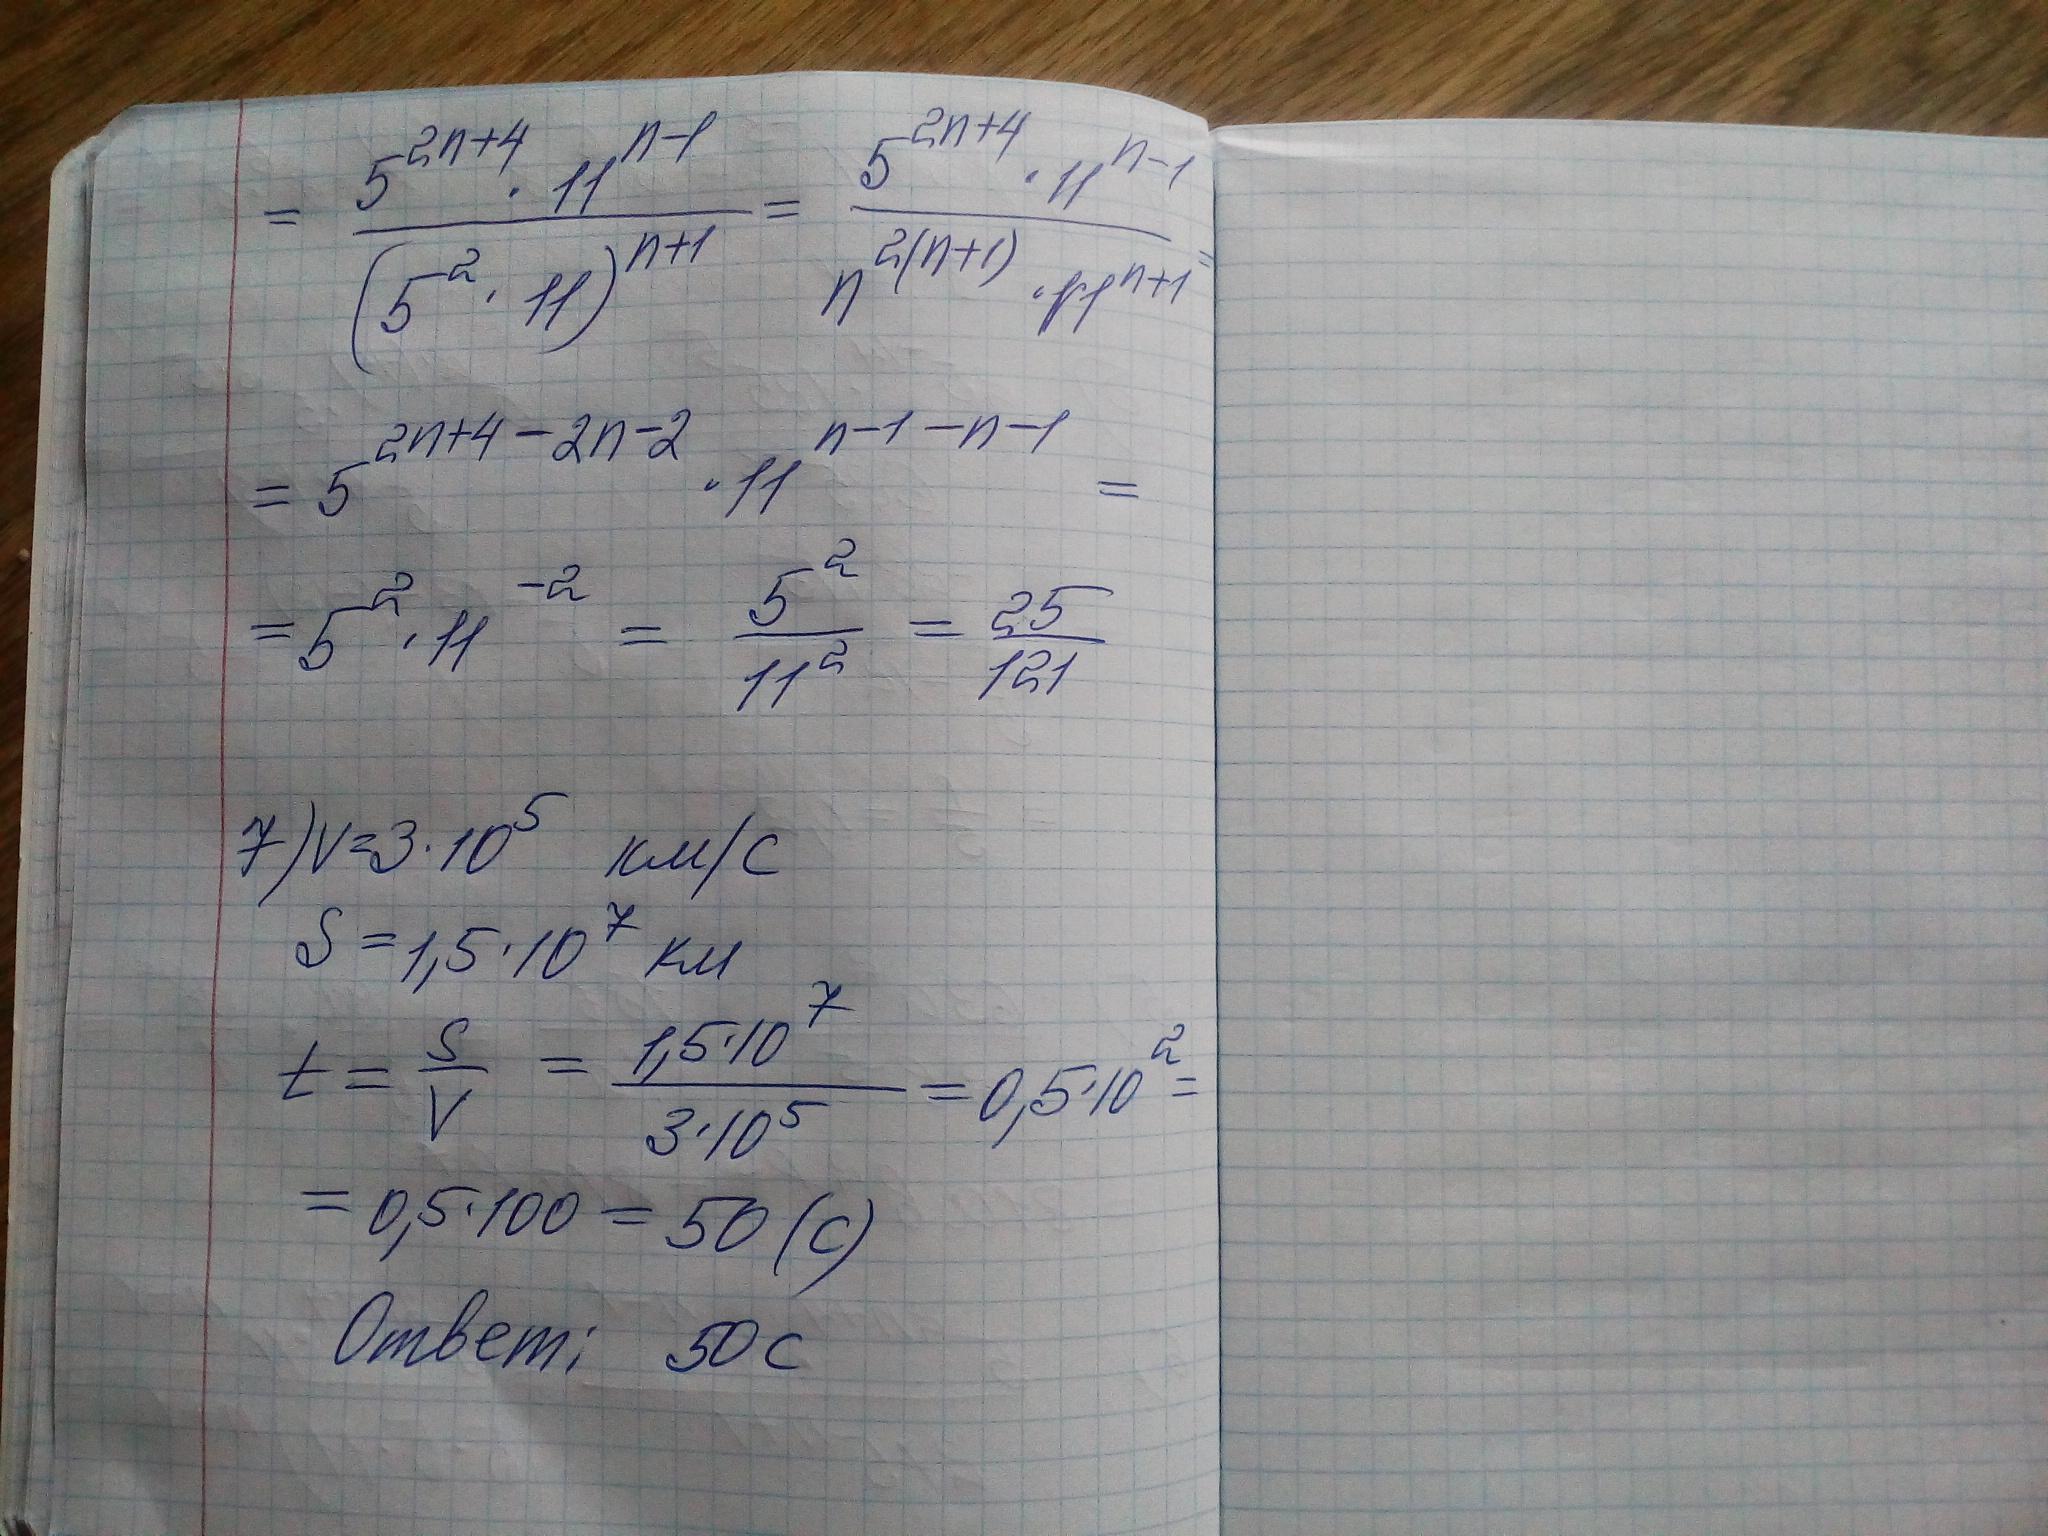 = 5^(2n+4) · 11^(n-1) / (5^2 · 11)^(n+1) = 5^(2n+4) · 11^(n-1) / n^(2(n+1)) · 11^(n+1) =
= 5^(2n+4-2n-2) · 11^(n-1-n-1) =
= 5^2 · 11^(-2) = 5^2 / 11^2 = 25 / 121
7) V=3·10^5 км/с
S=1,5·10^7 км
t = S / V = 1,5·10^7 / 3·10^5 = 0,5·10^2 =
= 0,5·100 = 50 (с)
Ответ: 50 с